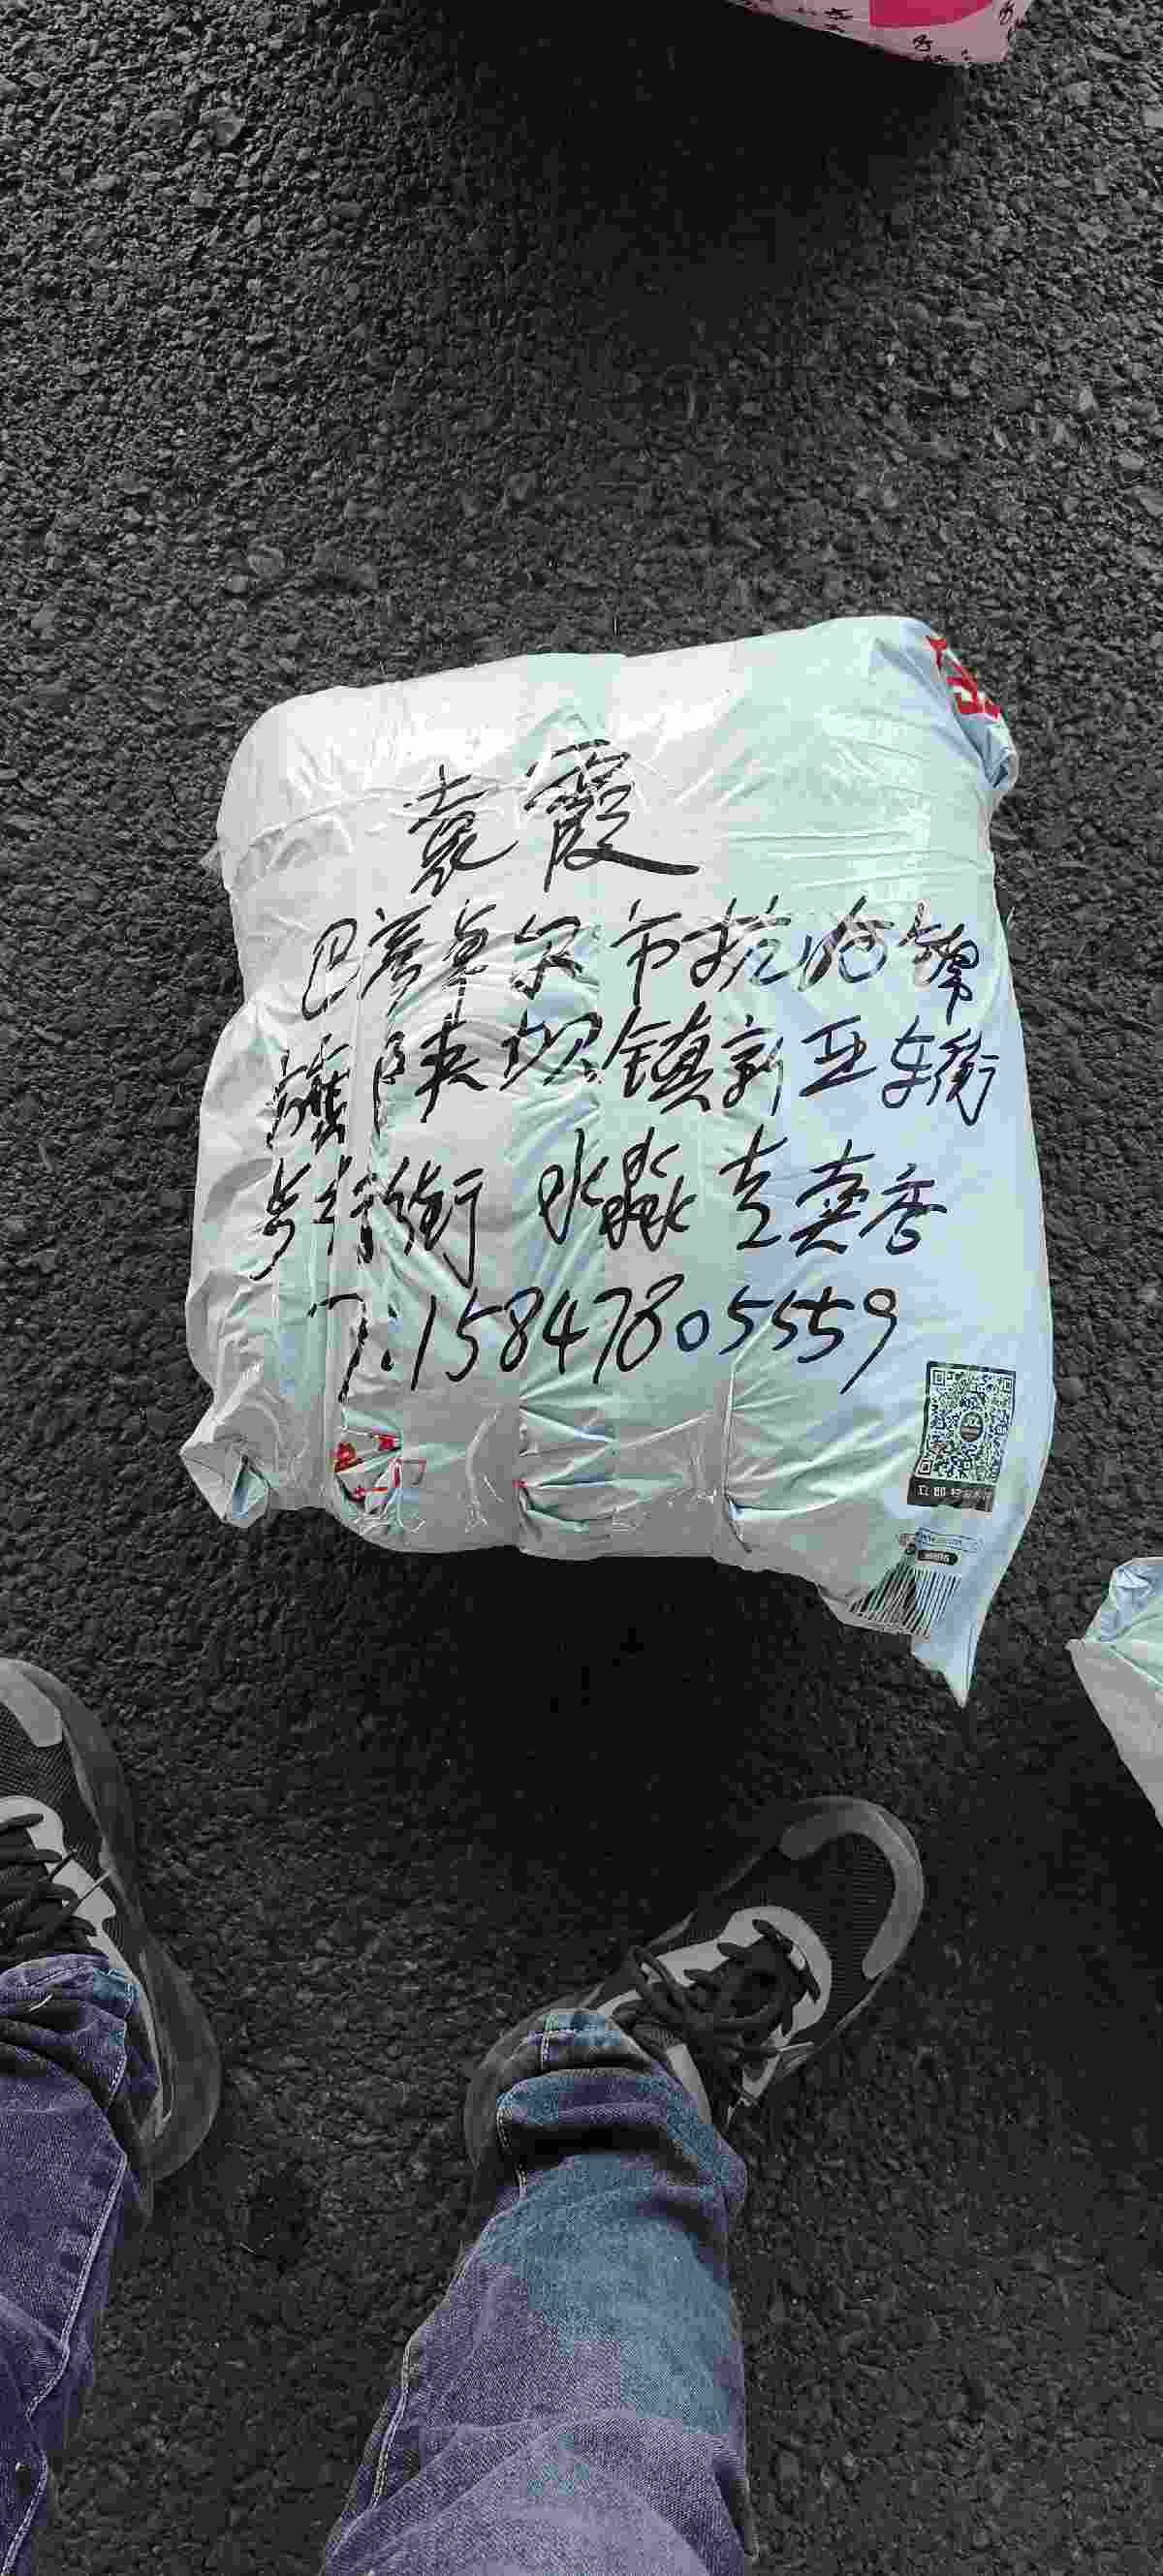 袁霞
巴彦卓尔市杭后锦
旗陕坝镇新亚东街
步行街 水淼
T:15847805559